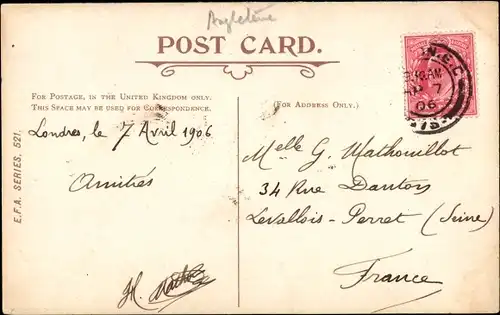 Angleterre
POST CARD.
FOR POSTAGE, IN THE UNITED KINGDOM ONLY,
THIS SPACE MAY BE USED FOR CORRESPONDENCE.
(FOR ADDRESS ONLY.)
N.E.C
AP 7
06
E.F.A. SERIES. 521.
Londres, le 7 Avril 1906
Amitiés
H.
Melle G. Mathouillot
34 Rue Danton
Levallois-Perret (Seine)
France